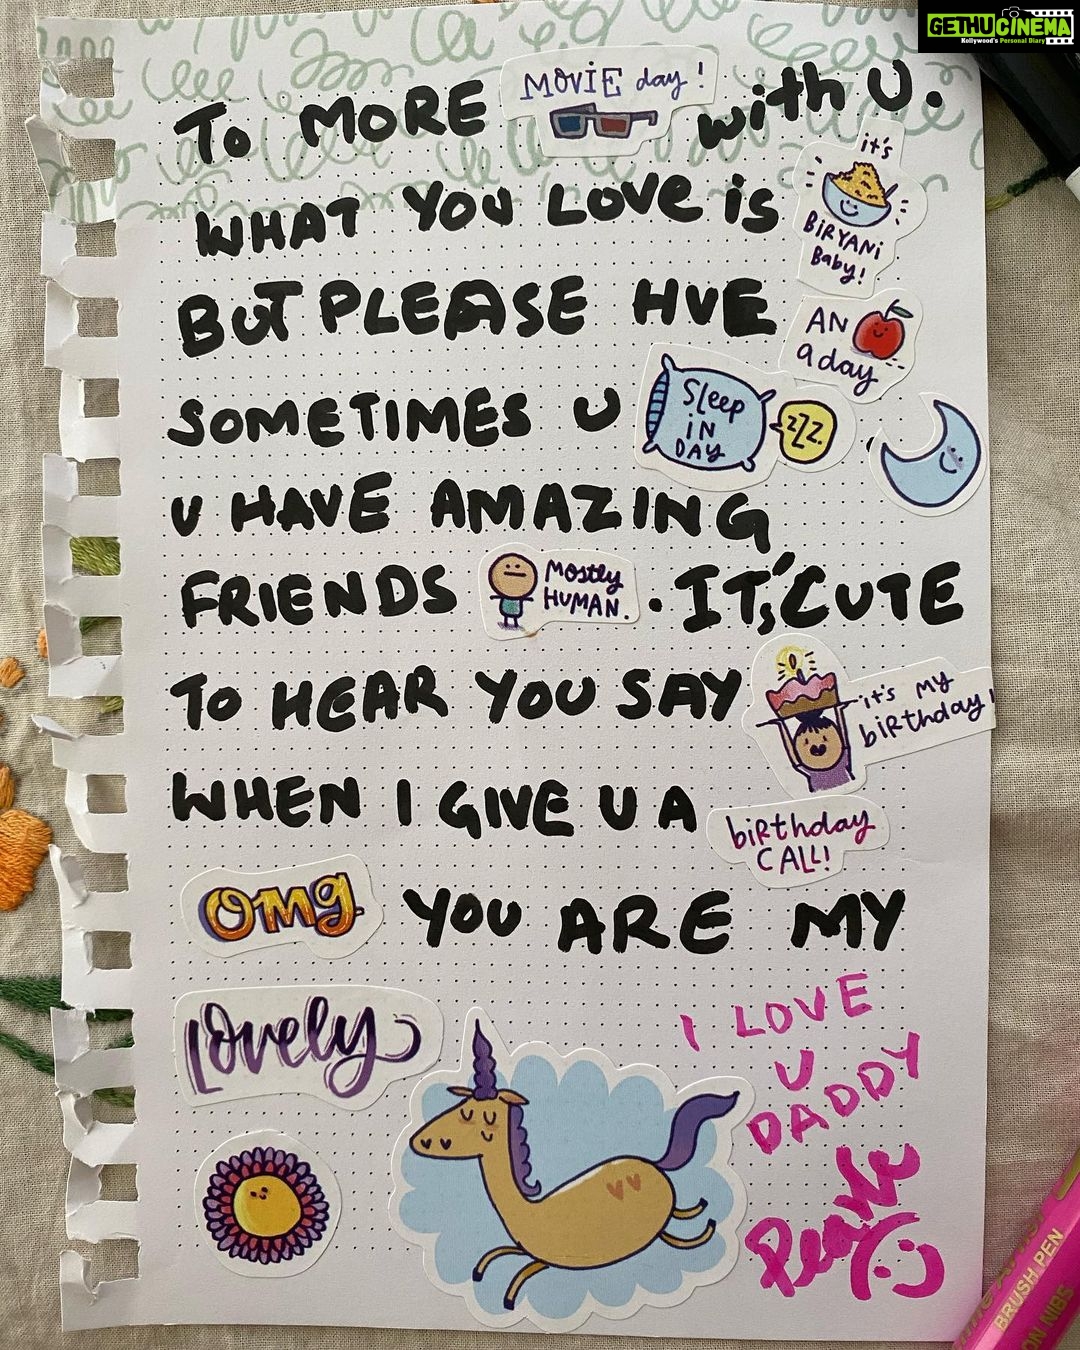 GETHUCINEMA
Kollywood's Personal Diary
To MORE MOVIE day! with U.
WHAT YOU LOVE is it's BIRYANi Baby!
BUT PLEASE HVE AN a day
SOMETIMES U SLeep iN DAY zzz.
U HAVE AMAZING
FRIENDS Mostly HUMAN. . IT'S, CUTE
To HEAR YOU SAY it's MY birthday!
WHEN I GIVE U A biRthday CALL!
OMG YOU ARE MY
Lovely
I LOVE
U
DADDY
BRUSH PEN
ON NIBS